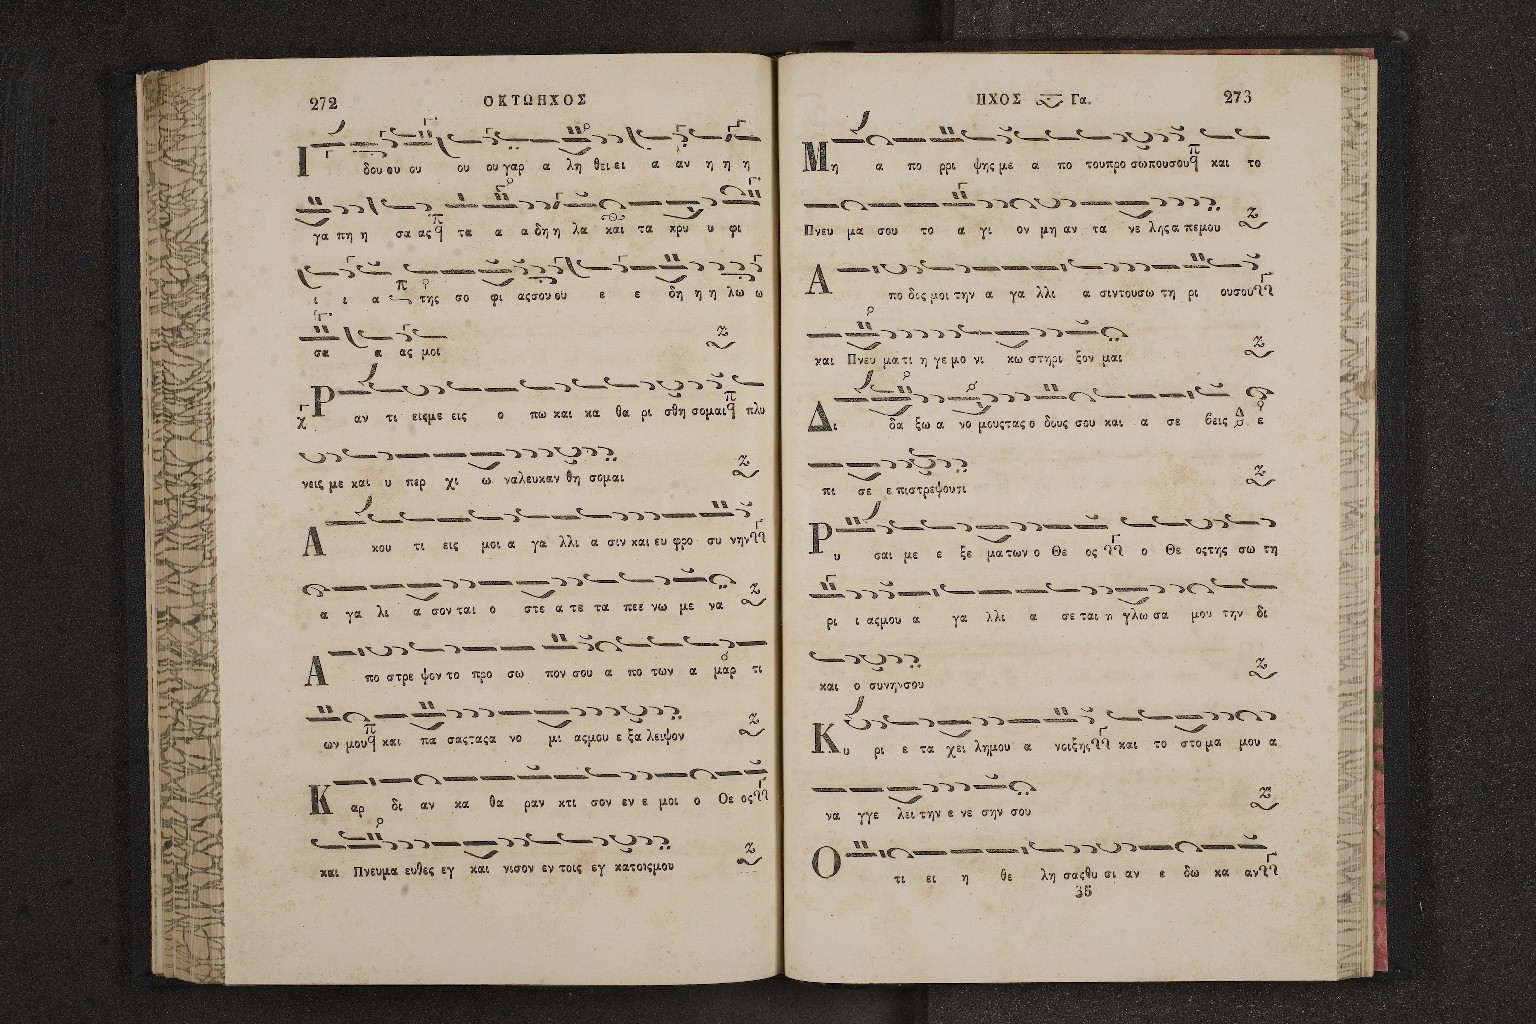 272 ΟΚΤΩΗΧΟΣ
Ι δου ου ου ου ου γαρ α λη θει ει α αν η η η
γα πη η σα ας τα α α δη η λα και τα κρυ υ φι
ι ι α της σο φι ας σου ου ε ε δη η η λω ω
σα α ας μοι
Ραν τι εις με εις ο πω και κα θα ρι σθη σομαι πλυ
νεις με και υ περ χι ω να λευκαν θη σομαι
Α κου τι εις μοι α γα λλι α σιν και ευ φρο συ νην
α γα λι α σον ται ο στε α τε τα πεε νω με να
Α πο στρε ψον το προ σω πον σου α πο των α μαρ τι
ων μου και πα σας τας α νο μι ας μου ε ξα λειψον
Καρ δι αν κα θα ραν κτι σον εν ε μοι ο Θε ος
και Πνευμα ευθες εγ και νισον εν τοις εγ κατοις μου
ΗΧΟΣ Γα. 273
Μη α πο ρρι ψης με α πο του προ σωπου σου και το
Πνευ μα σου το α γι ον μη αν τα νε λης α πεμου
Α πο δις μοι την α γα λλι α σιν του σω τη ρι ου σου
και Πνευ μα τι η γε μο νι κω στηρι ξον μαι
Δι δα ξω α νο μους τας ο δους σου και α σε βεις ε
πι σε ε πιστρεψουσι
Ρυ σαι με ε ξε ματων ο Θε ος ο Θε ος της σω τη
ρι ι ας μου α γα λλι α σε ται η γλω σα μου την δι
και ο συνην σου
Κυ ρι ε τα χει λη μου α νοιξης και το στο μα μου α
να γγε λει την ε νε σην σου
Ο τι ει η θε λη σας θυ σι αν ε δω κα αν
35